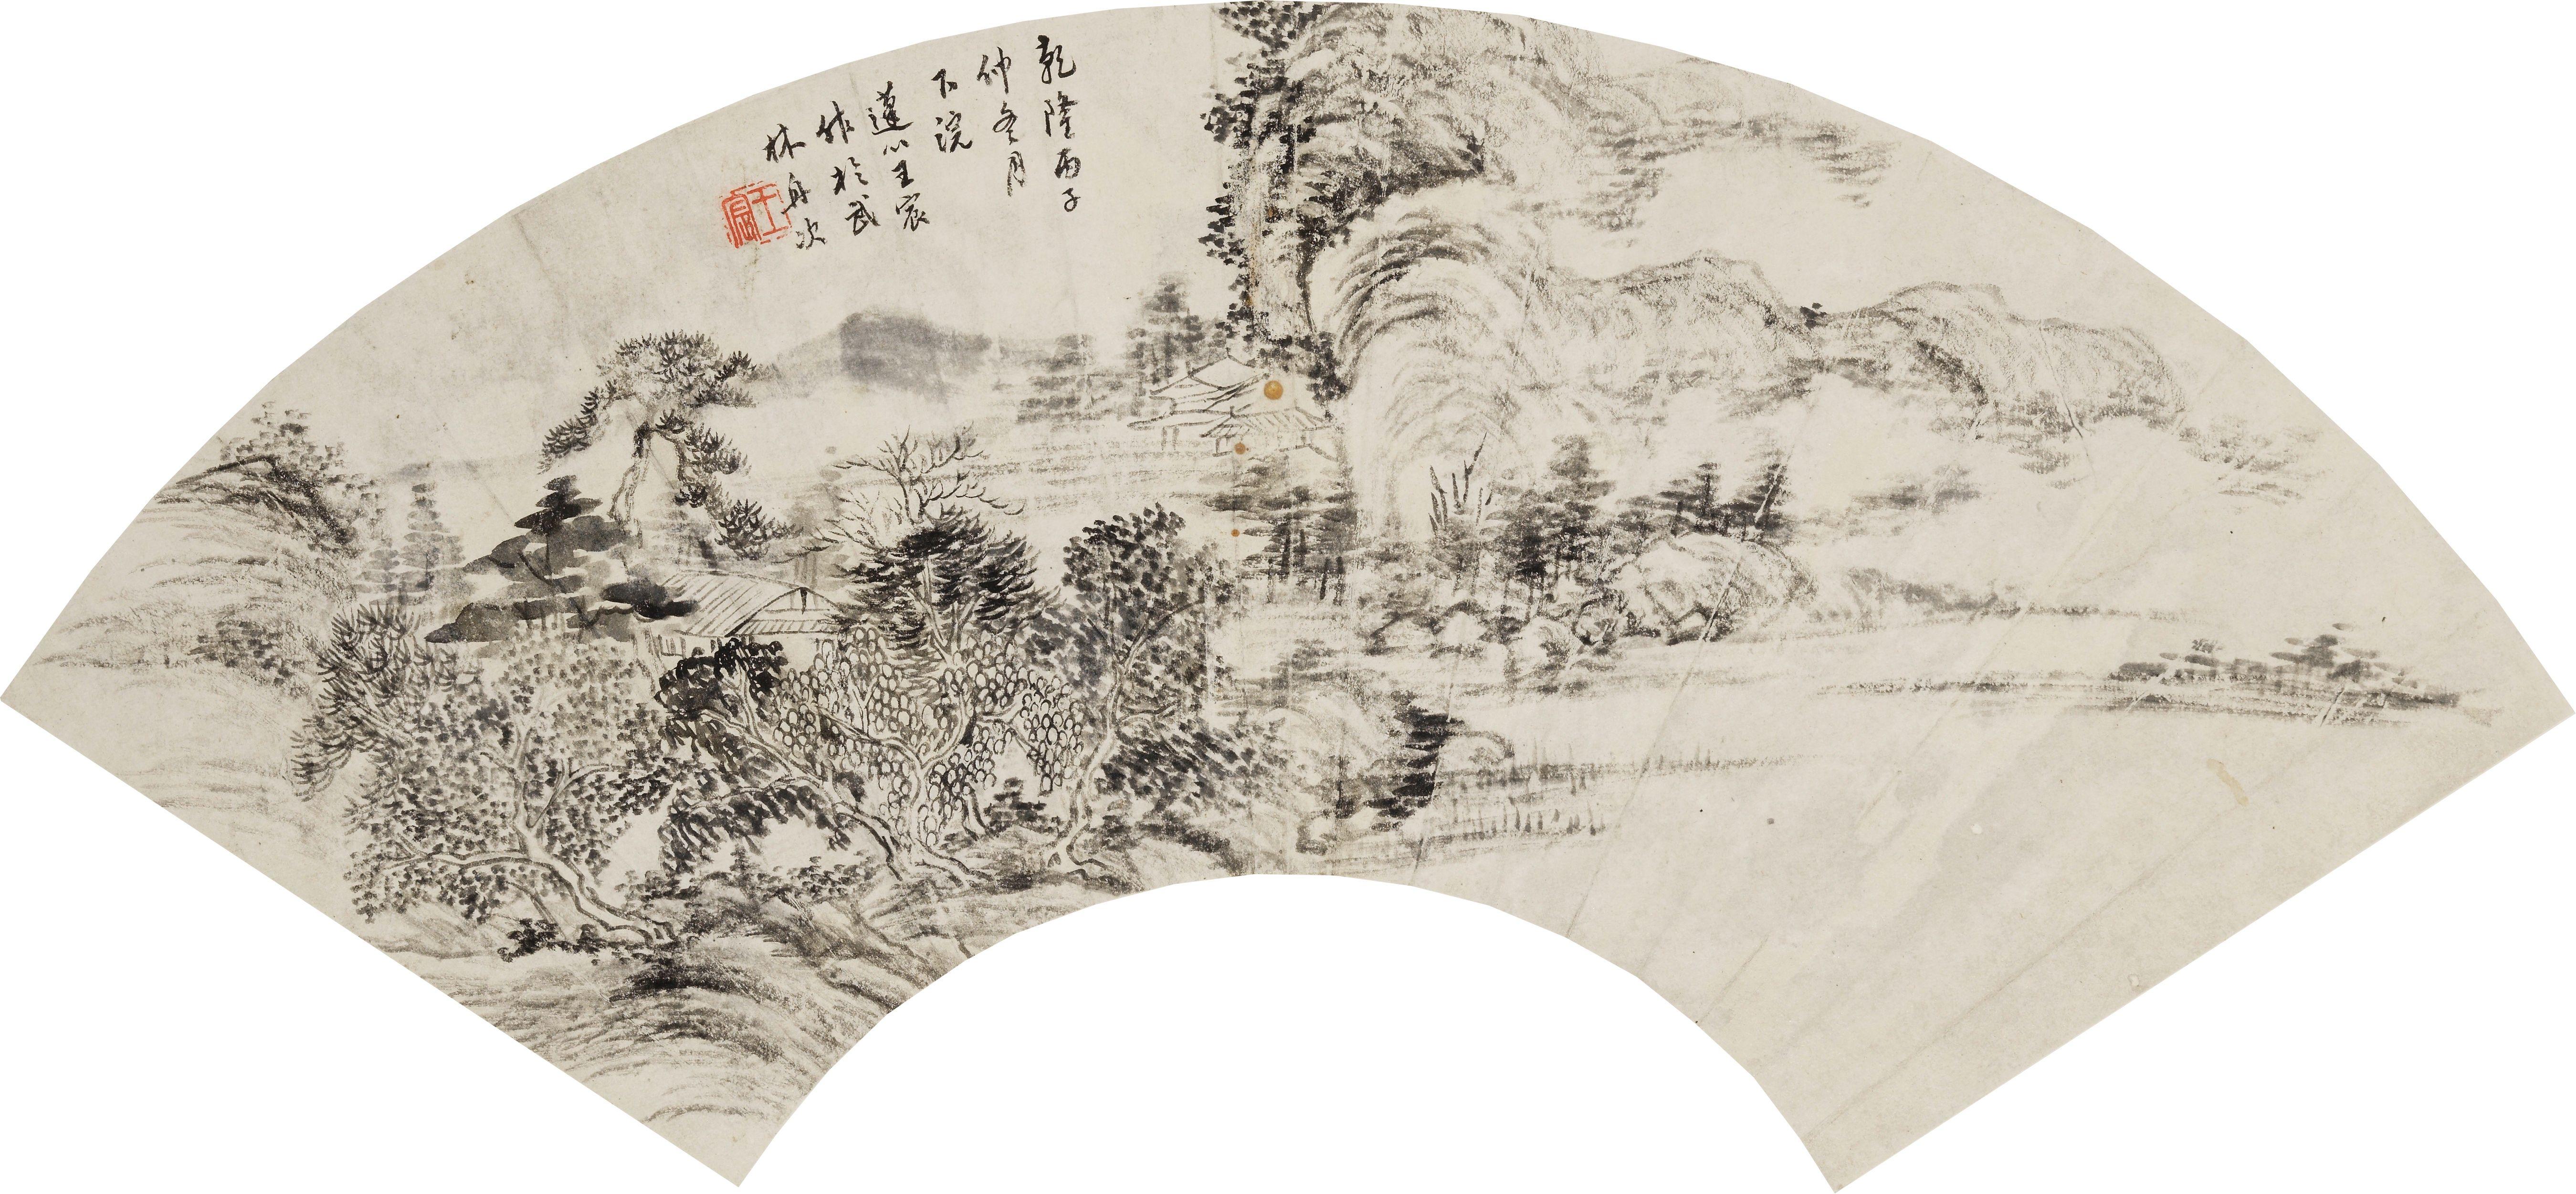 乾隆丙子
仲冬月
下浣
蓬心王宸
作於武
林舟次
王宸